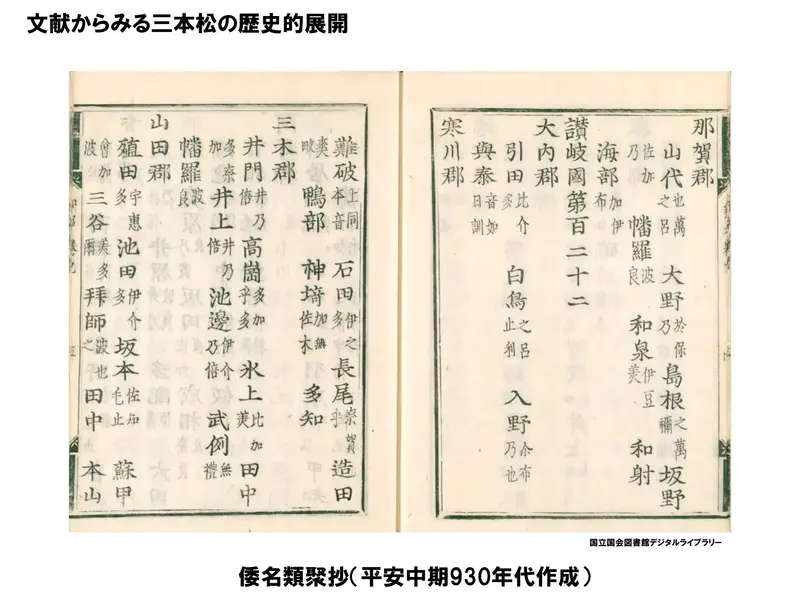 文献からみる三本松の歴史的展開
那賀郡
山代 也萬之呂 大野 於保乃 島根 之萬禰 坂野
佐加乃 幡羅 波良 和泉 伊豆美 和射
海部 加伊布
讃岐國第百二十二
大内郡
引田 比介多 白鳥 之呂止利 入野 尓布乃也
與泰 音如日訓
寒川郡
難破 上同本音 石田 伊之 長尾 奈賀乎 造田
鴨部 神埼 加無佐木 多知
三木郡
井門 井乃倍 高崗 多加乎多 氷上 比加美 田中
多奈加 井上 井乃倍 池邊 伊介乃倍 武例 無禮
幡羅 波良
山田郡
殖田 宇惠多 池田 伊介多 坂本 佐加毛止 蘇甲
曾加波 三谷 美多爾 拜師 波也之 田中 本山
国立国会図書館デジタルライブラリー
倭名類聚抄（平安中期930年代作成）